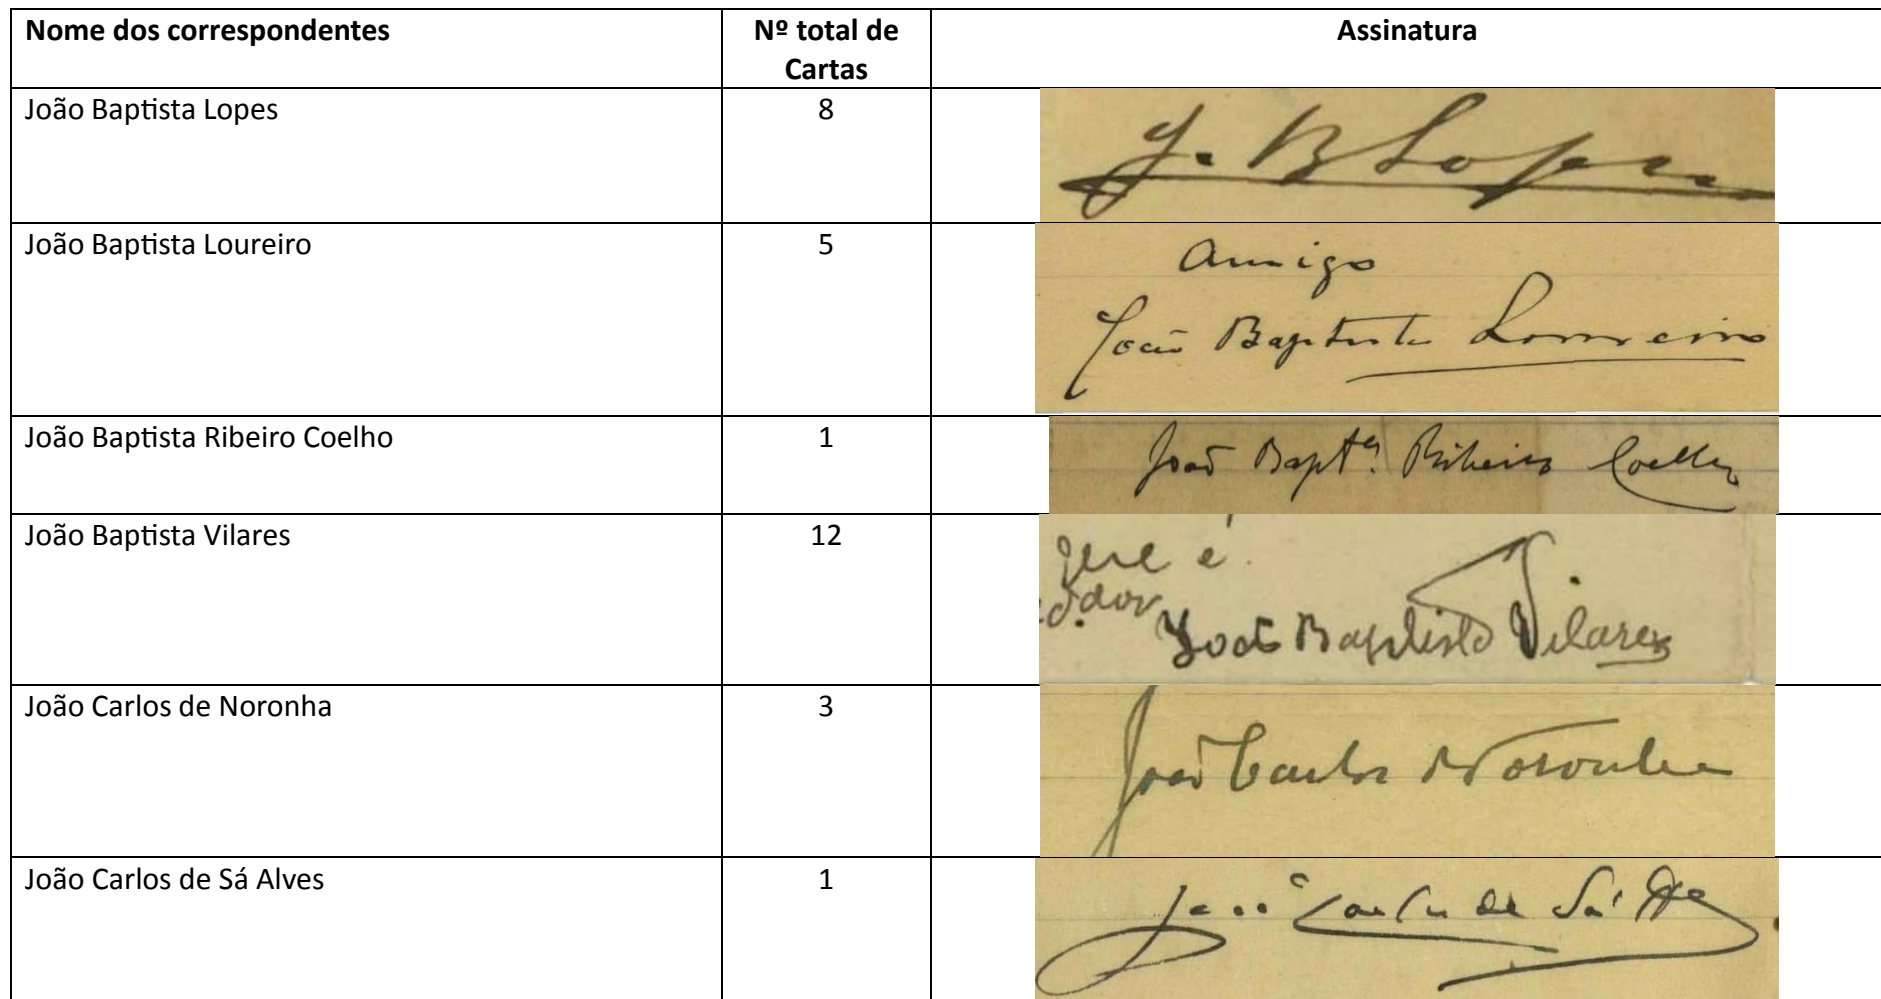 Nome dos correspondentes
Nº total de
Cartas
Assinatura
João Baptista Lopes
8
J. B Lopes
João Baptista Loureiro
5
Amigo
João Baptista Loureiro
João Baptista Ribeiro Coelho
1
João Bapt.ta Ribeiro Coelho
João Baptista Vilares
12
que é
João Baptista Vilares
João Carlos de Noronha
3
João Carlos de Noronha
João Carlos de Sá Alves
1
João Carlos de Sá Alves